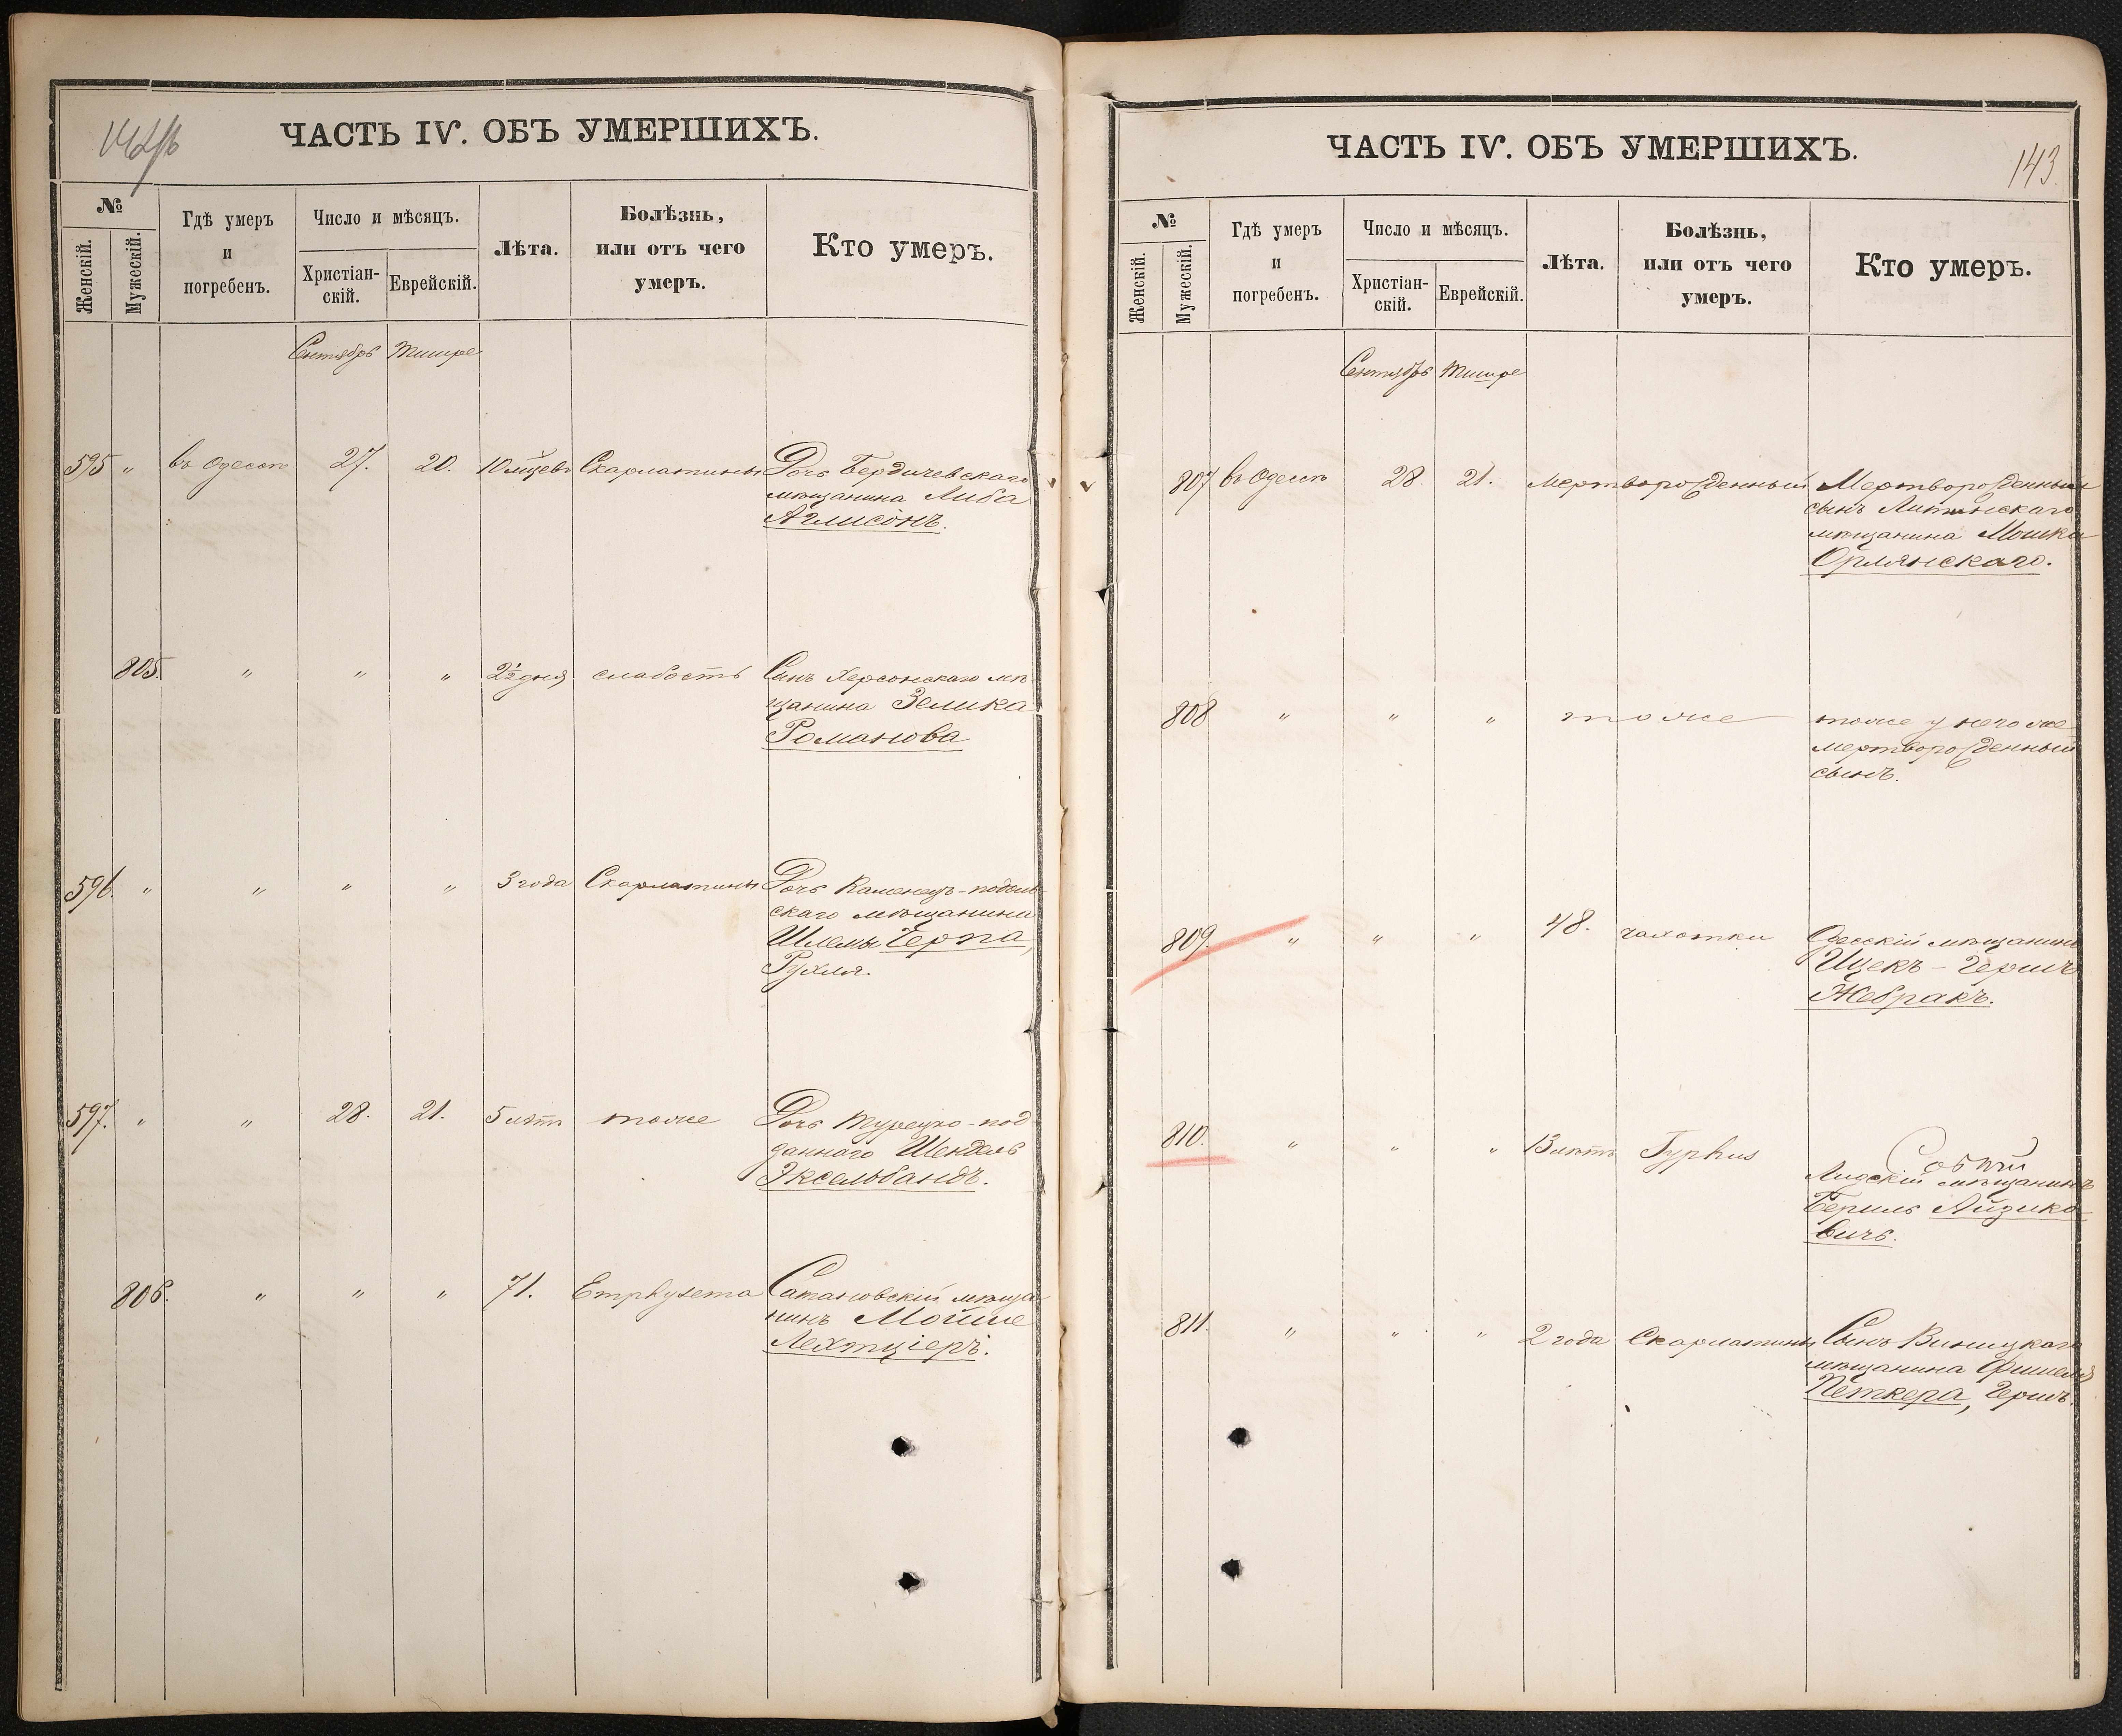 ЧАСТЬ IV. ОБЪ УМЕРШИХЪ.
№
Женскій.
Мужескій.
Гдѣ умеръ
и
погребенъ.
Число и мѣсяцъ.
Христіан-
скій.
Еврейскій.
Лѣта.
Болѣзнь,
или отъ чего
умеръ.
Кто умеръ.
Сентябрь Тишре
595 " въ Одессѣ 27. 20. 10 мѣсцевъ Скарлатины Дочь Бердичевскаго
мѣщанина Либа
Аглисонъ.
805. " " " 2½ дня слабость Сынъ Херсонскаго мѣ
щанина Зелика
Романова
596. " " " " 3 года Скарлатины Дочь Каменецъ-подоль
скаго мѣщанина
Шлемы Герпа,
Рухля.
597. " " 28. 21. 5 лѣтъ тоже Дочь Турецко-под
даннаго Шендель
Эксельбандъ.
806. " " " 71. Emphysema Сатановскій мѣща
нинъ Мойше
Лехтціеръ.
ЧАСТЬ IV. ОБЪ УМЕРШИХЪ.
143.
№
Женскій.
Мужескій.
Гдѣ умеръ
и
погребенъ.
Число и мѣсяцъ.
Христіан-
скій.
Еврейскій.
Лѣта.
Болѣзнь,
или отъ чего
умеръ.
Кто умеръ.
Сентябрь Тишре
807 въ Одессѣ 28. 21. Мертворожденный Мертворожденный
сынъ Литинскаго
мѣщанина Мошка
Орлянскаго.
808 " " " тоже тоже у него же
мертворожденный
сынъ.
809. " " " 48. чахотки Одесскій мѣщанинъ
Ицекъ-Гершъ
Жебракъ.
810. " " " 13 лѣтъ Typhus
Лидскій мѣщанинъ
Бериль Айзико-
вичъ.
811. " " " 2 года Скарлатины Сынъ Виницкаго
мѣщанина Фишеля
Петкера, Гершъ.